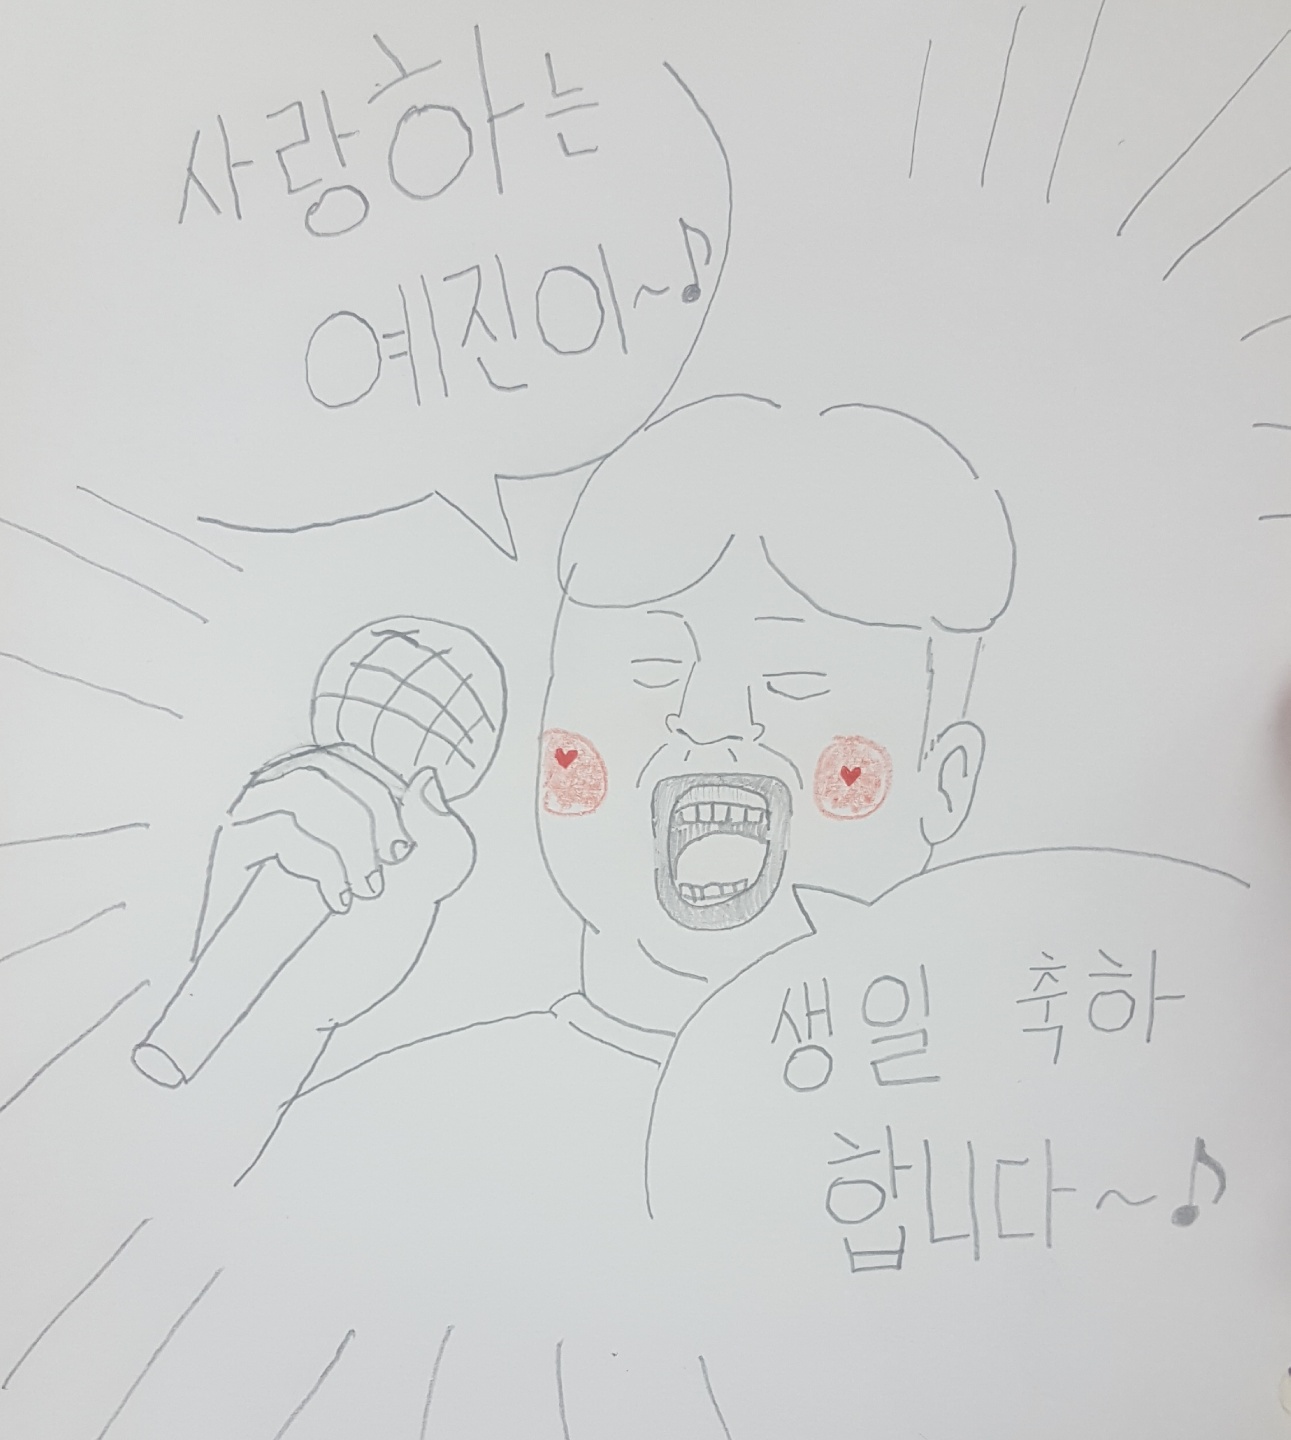 사랑하는
예진이~♪
생일 축하
합니다~♪